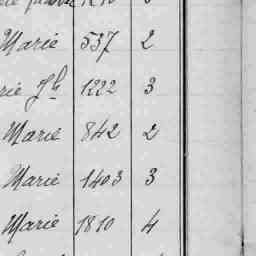 Marie 537 2
rie Jh 1222 3
Marie 842 2
Marie 1403 3
Marie 1810 4